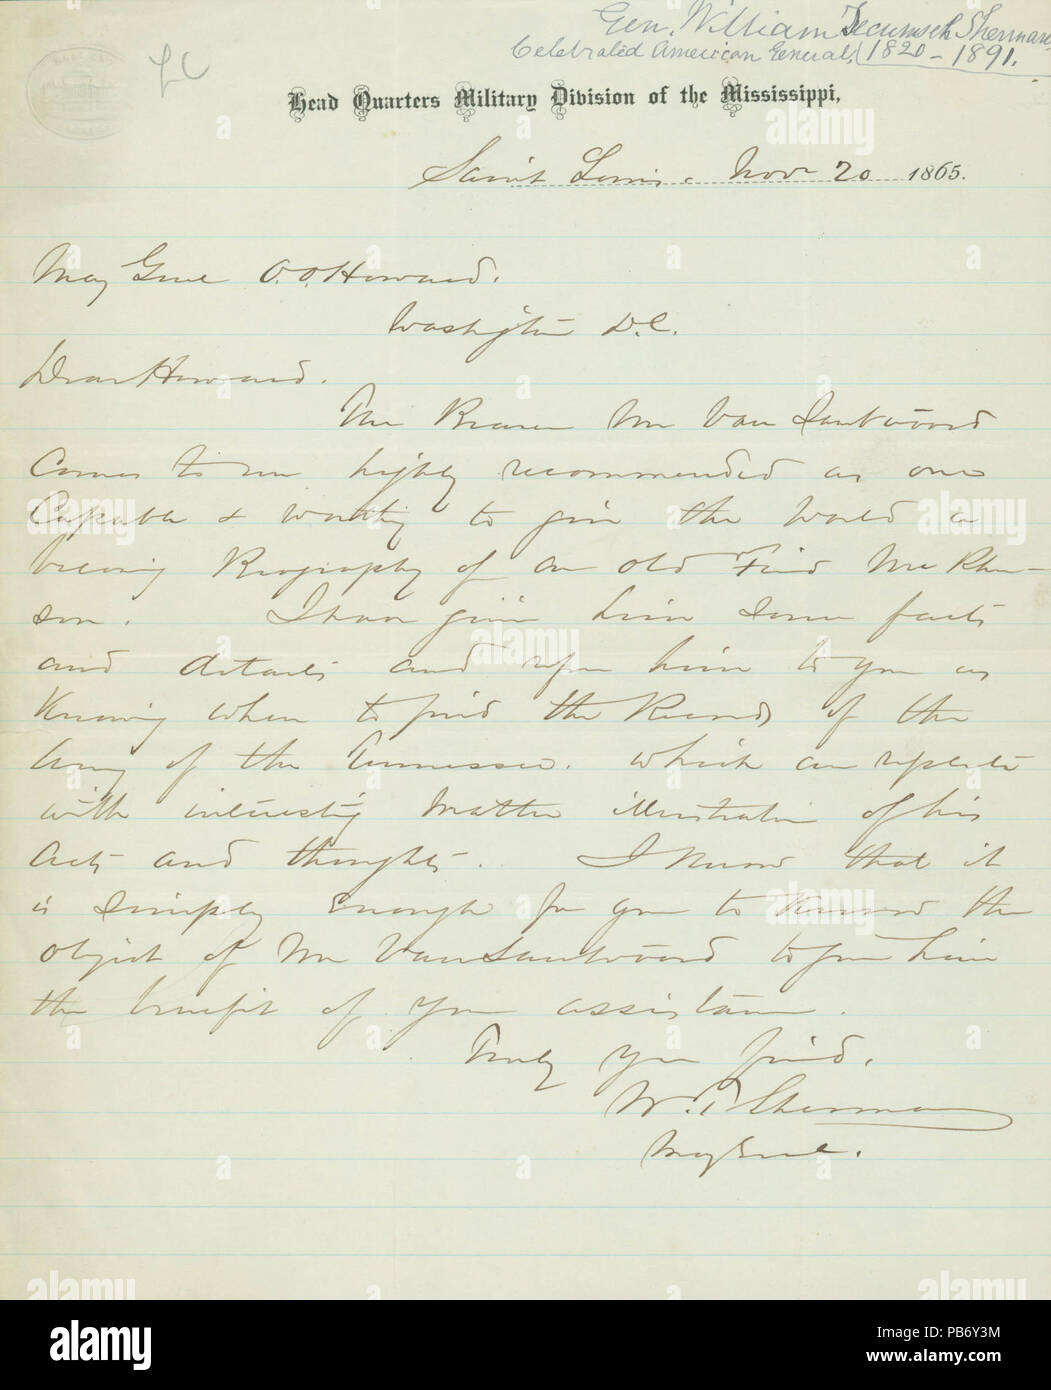 Gen. William Tecumseh Sherman
Celebrated American General, (1820 - 1891.
LC
Head Quarters Military Division of the Mississippi,
Saint Louis. Nov 20 1865.
Maj Genl O. O. Howard.
Washington D.C.
Dear Howard.
The Bearer Mr Van Santvoord
comes to me highly recommended as one
Capable & worthy to give the World a
Biography of an old Friend McPher-
son. I have given him some facts
and details and refer him to you as
Knowing where to find the Records of the
Army of the Tennessee. which are replete
with interesting matter illustrative of his
Acts and thoughts. I Know that it
is simply enough for you to Know the
object of Mr Van Santvoord to give him
the benefit of your assistance.
Truly your friend.
W. T. Sherman
Maj Genl.
alamy
a
alamy
Image ID: PB6Y3M
www.alamy.com